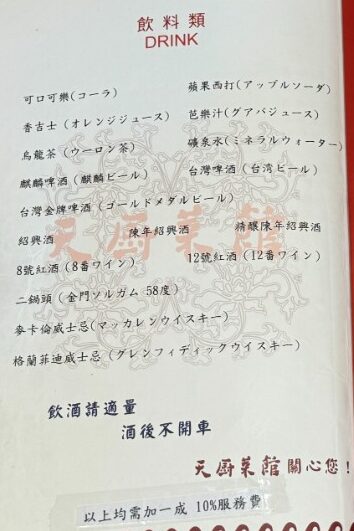 飲料類
DRINK
可口可樂(コーラ) 蘋果西打(アップルソーダ)
香吉士(オレンジジュース) 芭樂汁(グアバジュース)
烏龍茶(ウーロン茶) 礦泉水(ミネラルウォーター)
麒麟啤酒(麒麟ビール) 台灣啤酒(台湾ビール)
台灣金牌啤酒(ゴールドメタルビール)
紹興酒 陳年紹興酒 精釀陳年紹興酒
8號紅酒(8番ワイン) 12號紅酒(12番ワイン)
二鍋頭(金門ソルガム 58度)
麥卡倫威士忌(マッカレンウイスキー)
格蘭菲迪威士忌(グレンフィディックウイスキー)
天厨菜館
飲酒請適量
酒後不開車
天厨菜館關心您!
以上均需加一成 10%服務費